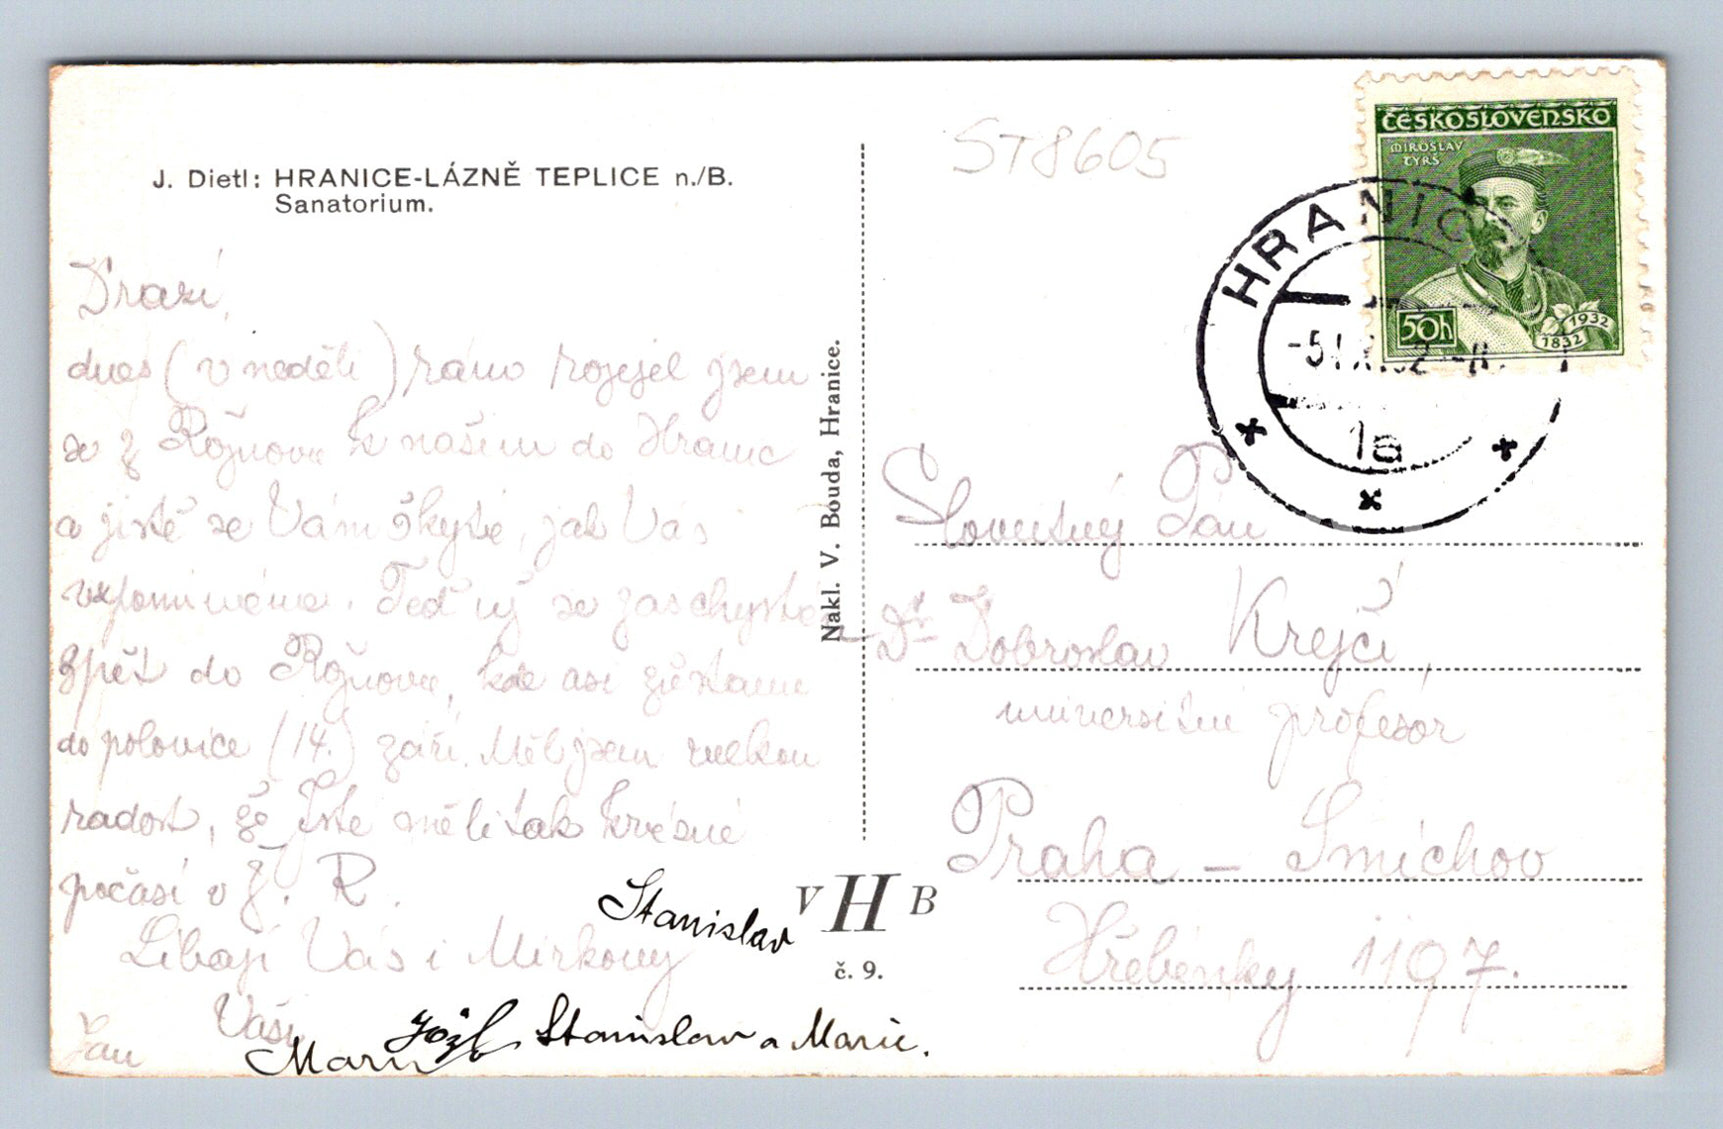 J. Dietl: HRANICE-LÁZNĚ TEPLICE n./B.
Sanatorium.
Drazí,
dnes (v neděli) ráno rozjel jsem
se z Rožnova k našim do Hranic
a jistě se Vám škytá, jak Vás
vzpomínáme. Teď už se zas chystáme
zpět do Rožnova, kde asi zůstanu
do polovice (14.) září. Měl jsem velkou
radost, že jste měli tak krásné
počasí v Ž. R.
Líbají Vás i Mirkovy
Vaši
Jan
Stanislav
Marie
Stanislav a Marie.
Nakl. V. Bouda, Hranice.
V H B
č. 9.
ST8605
ČESKOSLOVENSKO
MIROSLAV
TYRŠ
50h
1932
1832
HRANIC
1a
Slovutný Pán
Dr Dobroslav Krejčí,
universitní profesor
Praha - Smíchov
Hřebénky 1197.